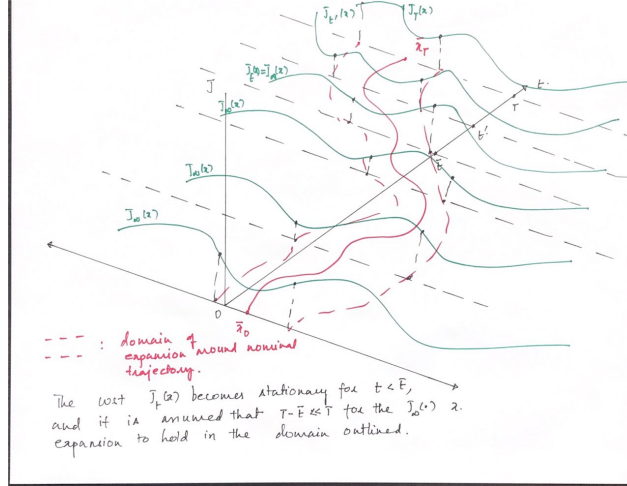 J̄_t'(x)
J_T(x)
x̄_T
J̄_t̄(x)=J̄_∞(x)
J
J̄_∞(x)
t
T
t'
t̄
J̄_∞(x)
J̄_∞(x)
0
x̄_0
--- : domain of
--- expansion around nominal
trajectory.
x.
The cost J̄_t(x) becomes stationary for t < t̄,
and it is assumed that T-t̄ << T for the J̄_∞(•)
expansion to hold in the domain outlined.